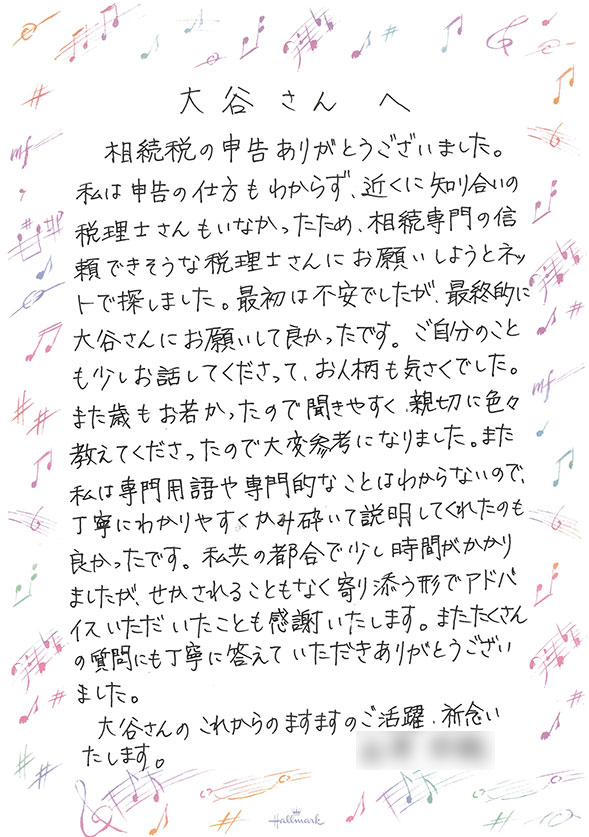 大谷さんへ
相続税の申告ありがとうございました。
私は申告の仕方もわからず、近くに知り合いの
税理士さんもいなかったため、相続専門の信
頼できそうな税理士さんにお願いしようとネッ
トで探しました。最初は不安でしたが、最終的に
大谷さんにお願いして良かったです。ご自分のこと
も少しお話してくださって、お人柄も気さくでした。
また歳もお若かったので聞きやすく、親切に色々
教えてくださったので大変参考になりました。また
私は専門用語や専門的なことはわからないので、
丁寧にわかりやすくかみ砕いて説明してくれたのも
良かったです。私共の都合で少し時間がかかり
ましたが、せかされることもなく寄り添う形でアドバ
イスいただいたことも感謝いたします。またたくさん
の質問にも丁寧に答えていただきありがとうござい
ました。
大谷さんのこれからのますますのご活躍、祈念い
たします。
Hallmark